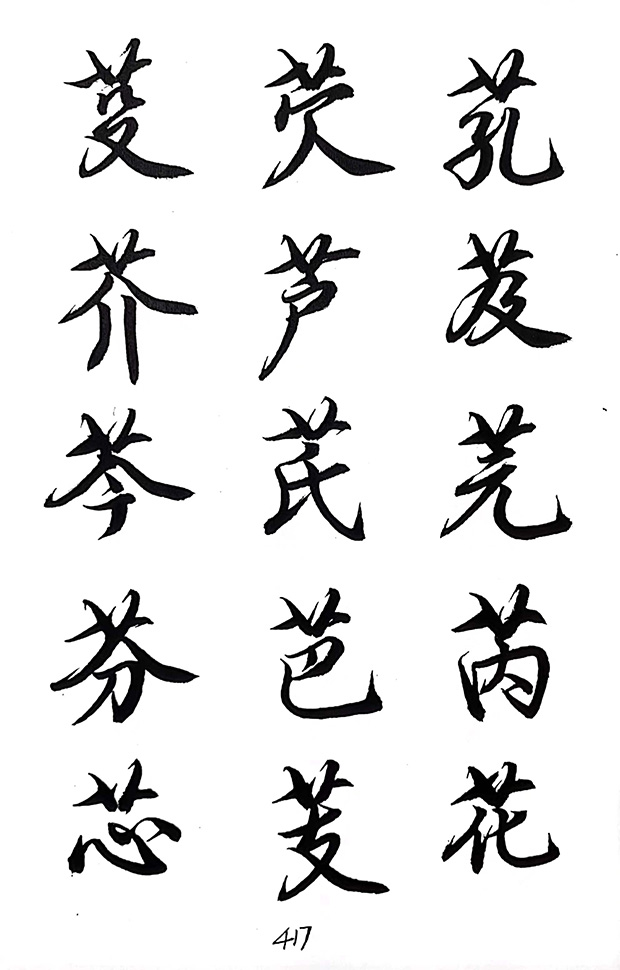 芤芨芫芮花
芡芦芪芭芰
芟芥芩芬芯
417